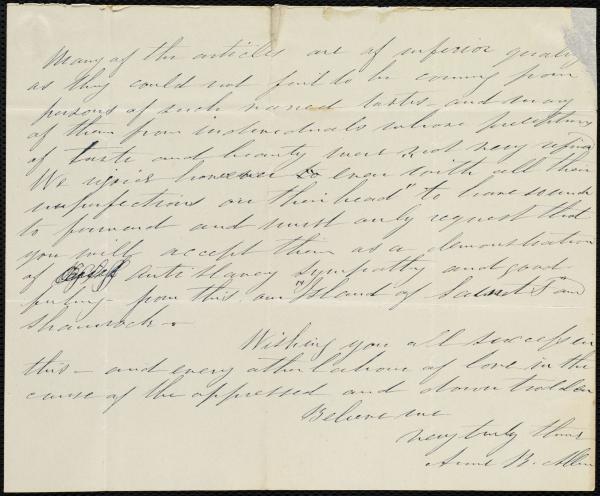 Many of the articles are of superior quality
as they could not fail to be coming from
persons of such varied tastes - and many
of them from individuals whose perceptions
of taste and beauty were not very refined
We rejoice however even "with all their
imperfections on their head" to have such
to forward and must only request that
you will accept them as a demonstration
of antislavery sympathy and good
from this our "Island of Saints" and
Shamrock -
Wishing you all success in
this - and every other labour of love in the
cause of the oppressed and down trodden
Believe me
very truly thine
Anne B. Allen